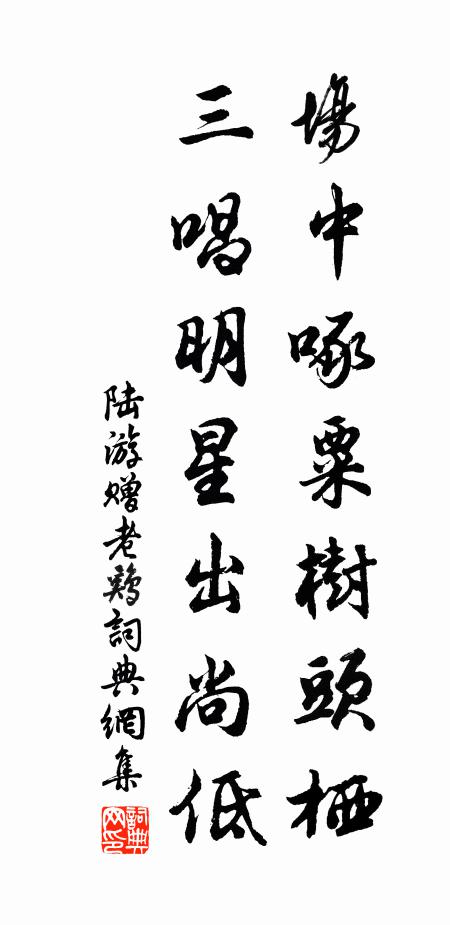 場中啄粟樹頭栖
三唱明星出尚低
陆游赠老鸡詞典網集
詞典网印